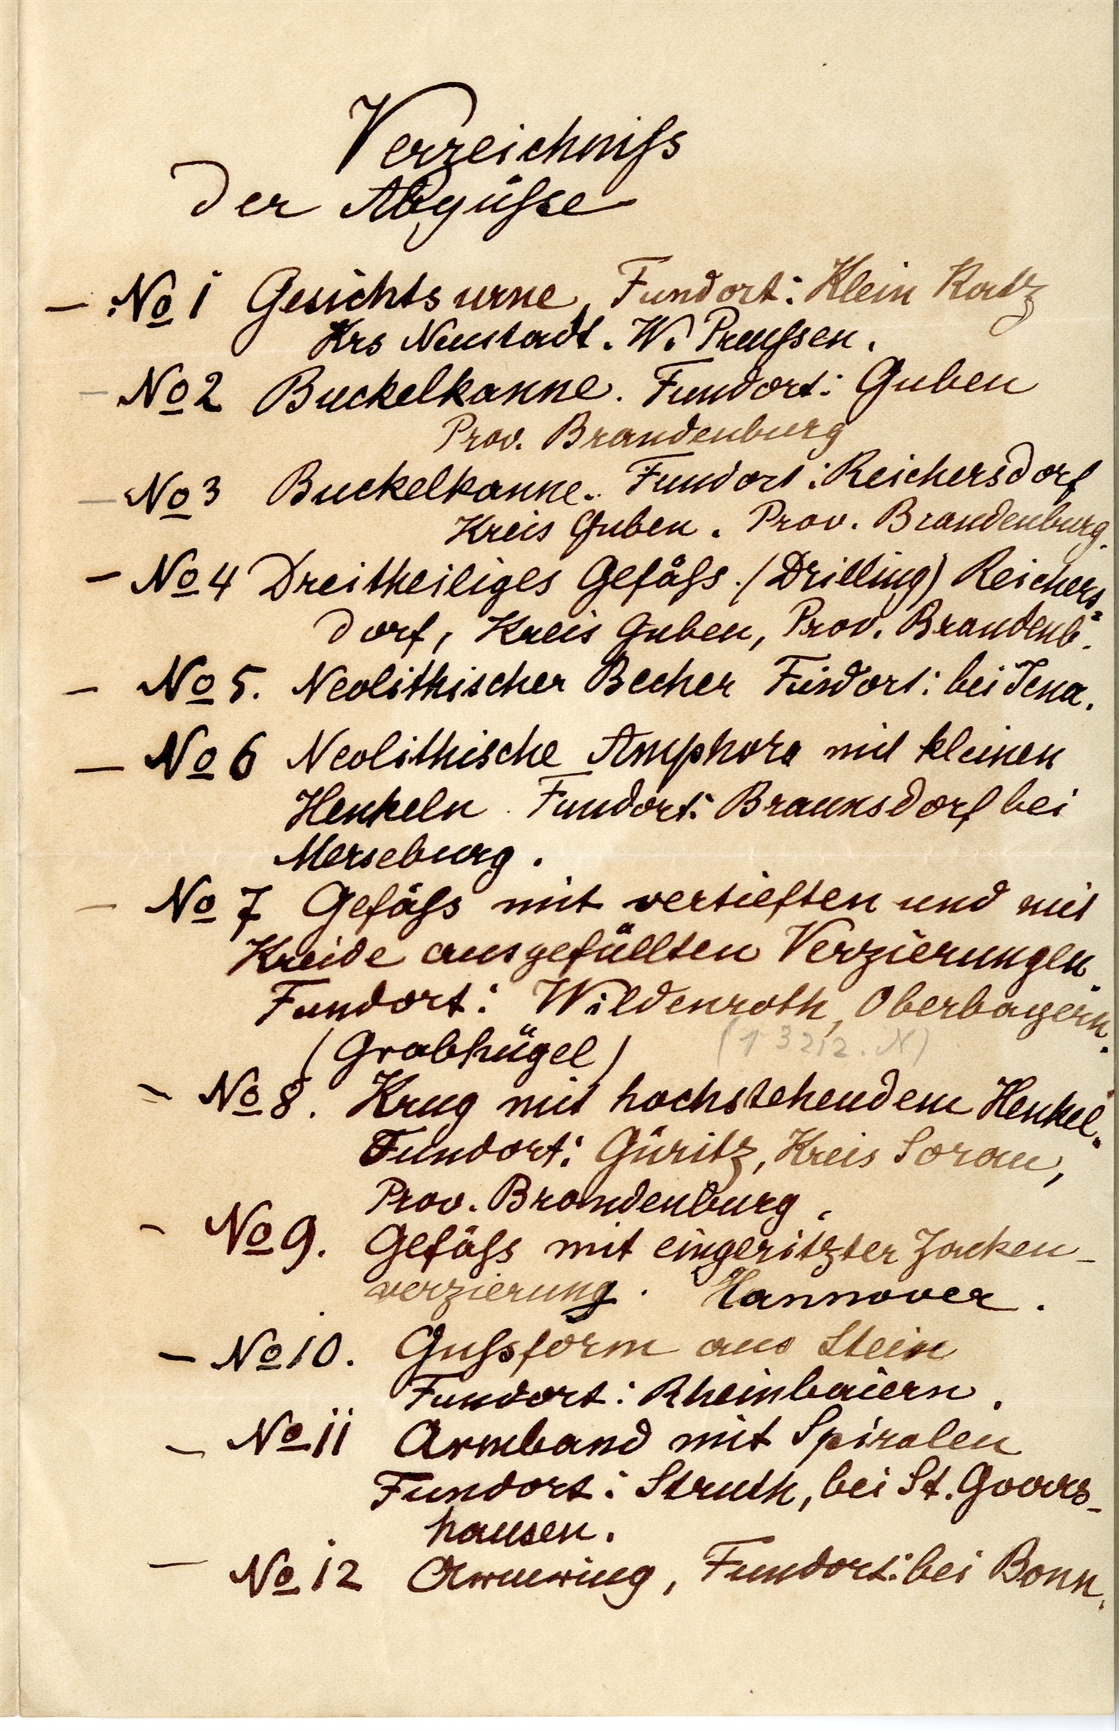 Verzeichniſs
der Abgüſse
– No 1 Gesichtsurne, Fundort: Klein Katz
Krs Neustadt. W. Preuſsen.
– No 2 Buckelkanne. Fundort: Guben
Prov. Brandenburg
– No 3 Buckelkanne. Fundort: Reichersdorf
Kreis Guben. Prov. Brandenburg.
– No 4 Dreitheiliges Gefäſs. (Drilling) Reichers=
dorf, Kreis Guben, Prov. Brandenb.
– No 5. Neolithischer Becher Fundort: bei Jena.
– No 6 Neolithische Amphora mit kleinen
Henkeln Fundort: Braunsdorf bei
Merseburg.
– No 7 Gefäſs mit vertieften und mit
Kreide ausgefüllten Verzierungen
Fundort: Wildenroth, Oberbayern.
(Grabhügel) (1322. N)
– No 8. Krug mit hochstehendem Henkel.
Fundort: Güritz, Kreis Sorau,
Prov. Brandenburg.
– No 9. Gefäſs mit eingeritzter Zacken–
verzierung. Hannover.
– No 10. Guſsform aus Stein
Fundort: Rheinbaiern.
– No 11 Armband mit Spiralen
Fundort: Struth, bei St. Goars–
hausen.
– No 12 Armring, Fundort: bei Bonn.